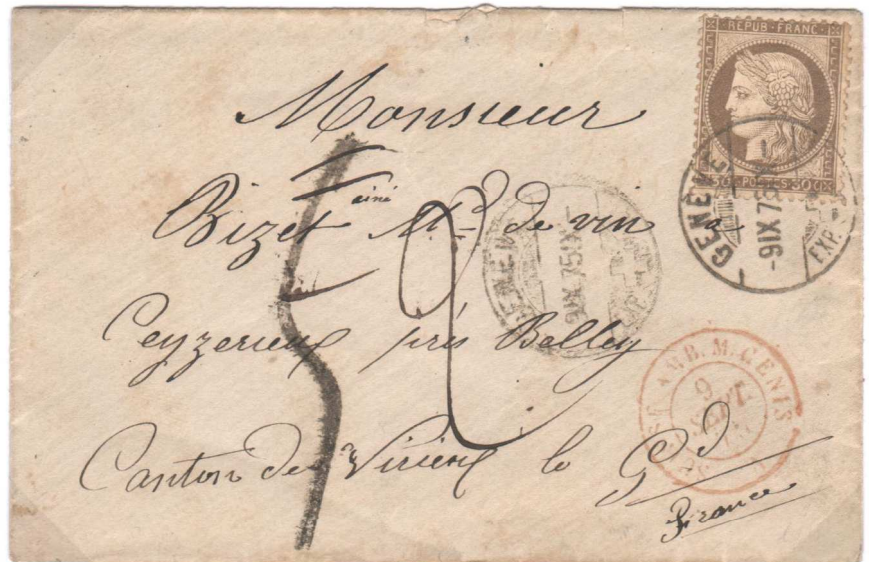 REPUB · FRANC
30c POSTES 30c
GENÈVE
-9 IX 75
EXP.
Monsieur
Bizet ainé Md de vin à
GENÈVE
9 IX 75
EXP.
Ceyzerieux près Belley
AMB. M. CENIS
9
SEPT
Canton de Virieux le Gd
France
5
2